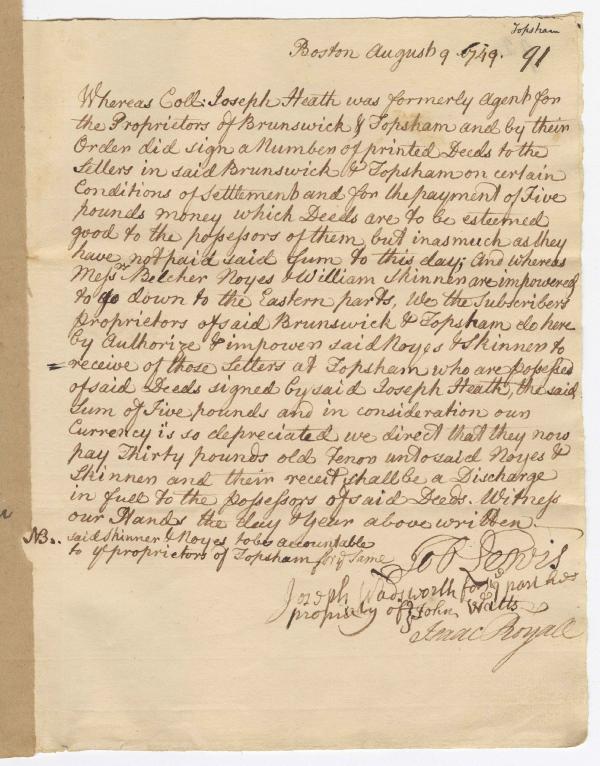 Topsham
Boston August 9 1749. 91
Whereas Coll: Joseph Heath was formerly Agent for
the Proprietors of Brunswick & Topsham and by their
Order did sign a Number of printed Deeds to the
Setlers in said Brunswick & Topsham on certain
Conditions of Settlement and for the payment of Five
pounds money which Deeds are to be esteemed
good to the possessors of them but inasmuch as they
have not paid said Sum to this day; And whereas
Messrs. Belcher Noyes & William Skinner are impowered
to go down to the Eastern parts, We the Subscribers
Proprietors of said Brunswick & Topsham do here
by Authorize & impower said Noyes & Skinner to
receive of those Setlers at Topsham who are possessed
of said Deeds signed by said Joseph Heath, the said
Sum of Five pounds and in consideration our
Currency is so depreciated we direct that they now
pay Thirty pounds old Tenor unto said Noyes &
Skinner and their receit shall be a Discharge
in full to the possessors of said Deeds. Witness
our Hands the day & year above written.
NB. said Skinner & Noyes to be accountable
to ye proprietors of Topsham for ye Same
Job Lewis
Joseph Wadsworth for ye part his
propriety of John Watts
Isaac Royall